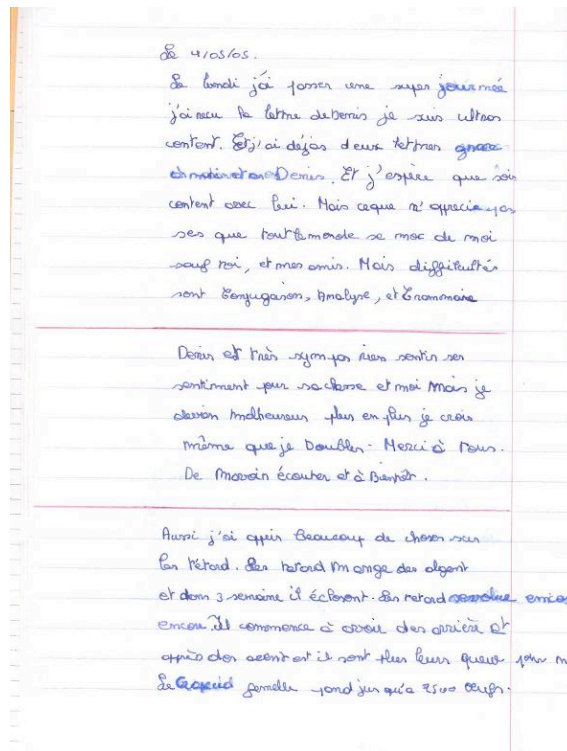 Le 4/05/05.
Le lundi j'ai passer une super journée
j'ai recu la lettre de Denis je suis ultras
content. Et j'ai déjas deux lettres
Denis. Et j'espère que sois
content avec lui. Mais ceque n'apprecie pas
ses que tout le monde se moc de moi
sauf toi, et mes amis. Mais difficultés
sont Conjugaison, Analyse, et Grammaire
Denis et très sympas sentir ses
sentiment pour sa classe et moi Mais je
malheureux plus en plus je crois
même que je Doubler. Merci à Tous.
De Mavoir écouter et à Bientôt.
Aussi j'ai appris Beaucoup de choses sur
les tétard. Les tetard mange des algent
et dans 3 semaine il éclosent. Les tetard encor
encor. Il commence à avoir des arrière et
après des avent et il sont plus leurs queue
Le femelle pond jusqu'a 2500 Oeufs.